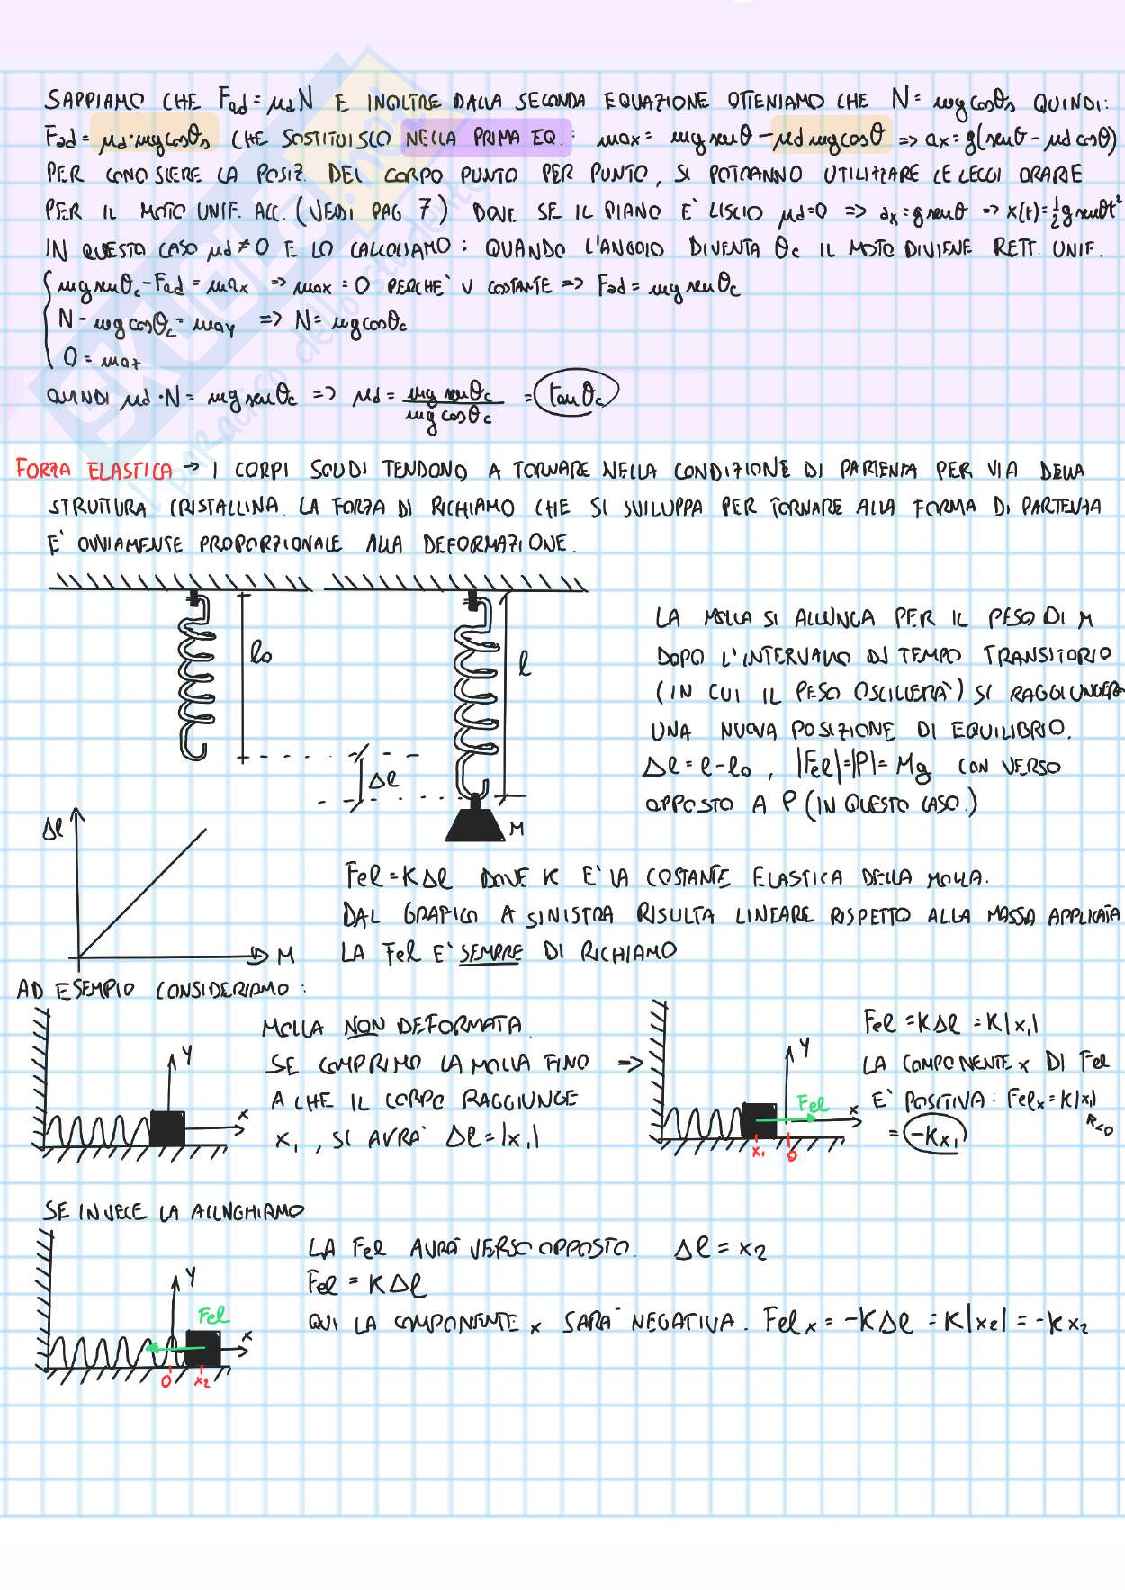 SAPPIAMO CHE Fad = μdN E INOLTRE DALLA SECONDA EQUAZIONE OTTENIAMO CHE N = mgcosθs QUINDI:
Fad = μd·mgcosθs CHE SOSTITUISCO NELLA PRIMA EQ: max = mgsenθ - μdmgcosθ => ax = g(senθ - μdcosθ)
PER CONOSCERE LA POSIZ. DEL CORPO PUNTO PER PUNTO, SI POTRANNO UTILIZZARE LE LEGGI ORARIE
PER IL MOTO UNIF. ACC. (VEDI PAG 7) DOVE SE IL PIANO E' LISCIO μd=0 => ax = gsenθ -> x(t) = 1/2 gsenθt²
IN QUESTO CASO μd ≠ 0 E LO CALCOLIAMO: QUANDO L'ANGOLO DIVENTA θc IL MOTO DIVIENE RETT. UNIF.
{ mgsenθc - Fad = max => max = 0 PERCHE' V COSTANTE => Fad = mgsenθc
N - mgcosθc = may => N = mgcosθc
0 = maz
QUINDI μd·N = mgsenθc => μd = mgsenθc / mgcosθc = tanθc
FORZA ELASTICA -> I CORPI SOLIDI TENDONO A TORNARE NELLA CONDIZIONE DI PARTENZA PER VIA DELLA
STRUTTURA CRISTALLINA. LA FORZA DI RICHIAMO CHE SI SVILUPPA PER TORNARE ALLA FORMA DI PARTENZA
E' OVVIAMENTE PROPORZIONALE ALLA DEFORMAZIONE.
l0
l
Δl
M
LA MOLLA SI ALLUNGA PER IL PESO DI M
DOPO L'INTERVALLO DI TEMPO TRANSITORIO
(IN CUI IL PESO OSCILLERA') SI RAGGIUNGERA
UNA NUOVA POSIZIONE DI EQUILIBRIO.
Δl = l-l0, |Fel|=|P|=Mg CON VERSO
OPPOSTO A P (IN QUESTO CASO.)
Δl
M
Fel = KΔl DOVE K E' LA COSTANTE ELASTICA DELLA MOLLA.
DAL GRAFICO A SINISTRA RISULTA LINEARE RISPETTO ALLA MASSA APPLICATA
LA Fel E' SEMPRE DI RICHIAMO
AD ESEMPIO CONSIDERIAMO:
Y
x
MOLLA NON DEFORMATA.
SE COMPRIMO LA MOLLA FINO ->
A CHE IL CORPO RAGGIUNGE
x1, SI AVRA' Δl = |x1|
Y
Fel
x
x1 0
Fel = KΔl = K|x1|
LA COMPONENTE x DI Fel
E' POSITIVA: Felx = K|x1|
= -Kx1
x<0
SE INVECE LA ALLNGHIAMO
Y
Fel
x
0 x2
LA Fel AVRA' VERSO OPPOSTO. Δl = x2
Fel = KΔl
QUI LA COMPONENTE x SARA' NEGATIVA. Felx = -KΔl = K|x2| = -Kx2